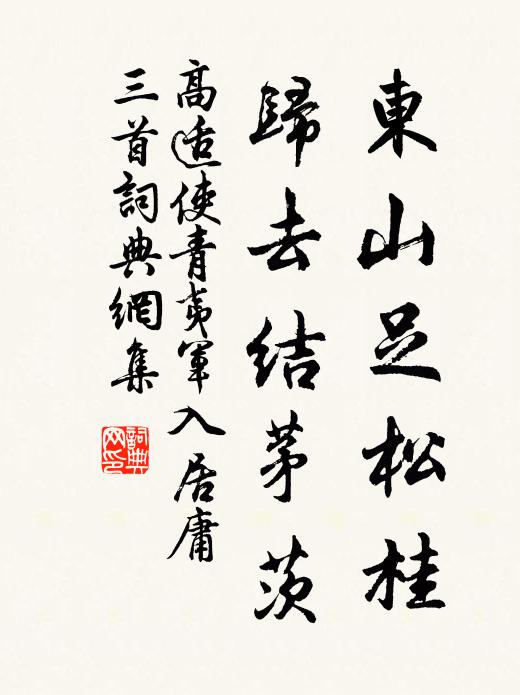 東山足松桂
歸去結茅茨
高适使青夷軍入居庸
三首詞典網集
詞典
网印